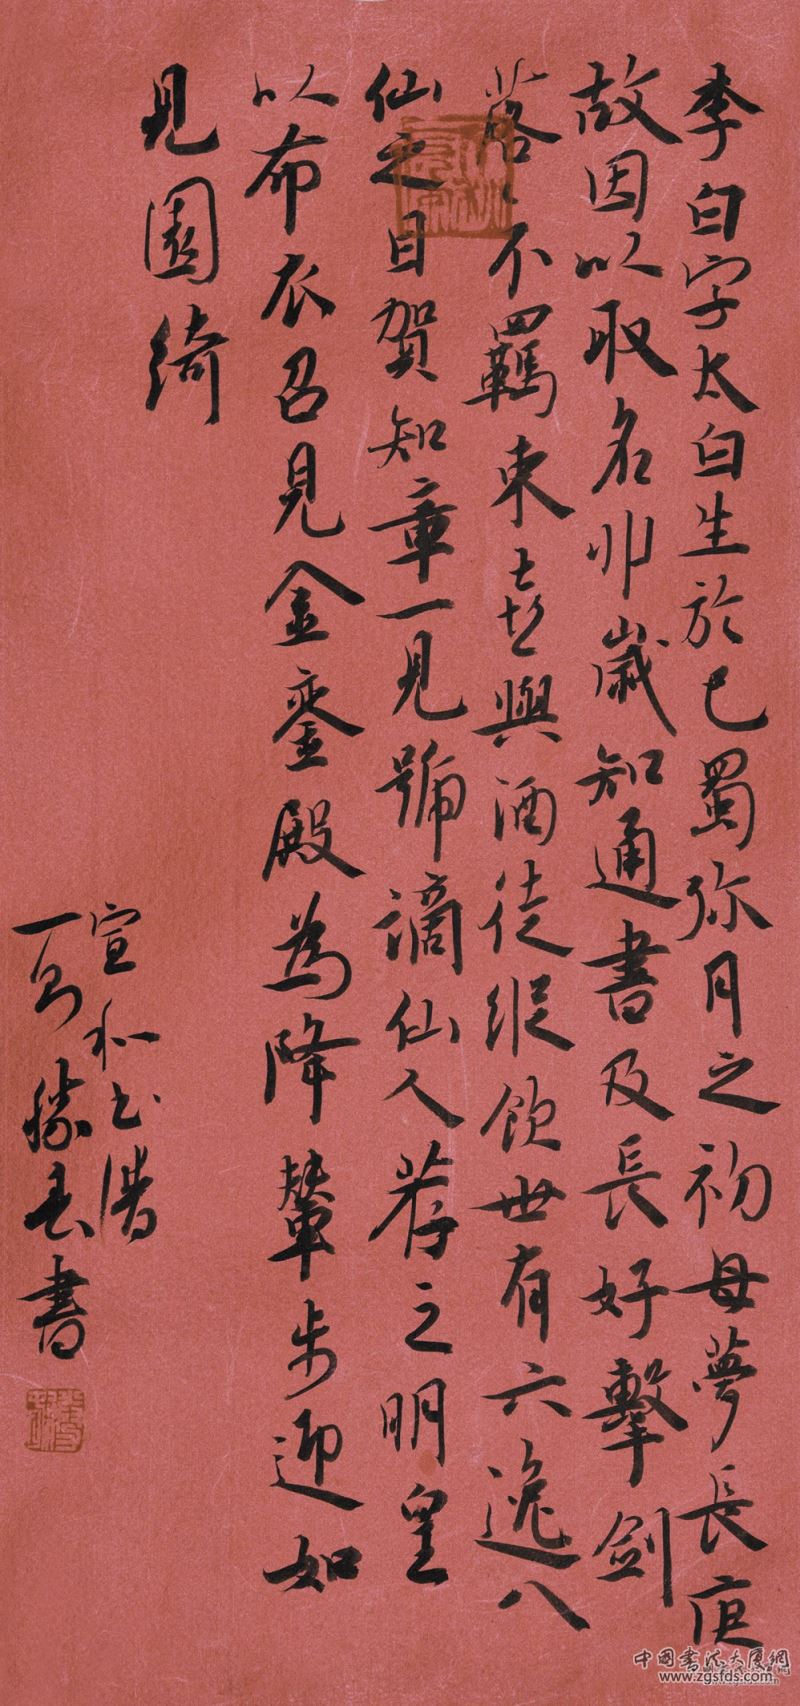 李白字太白生於巴蜀弥月之初母夢長庚
故因以取名丱歲知通書及長好擊劍
落、不羈束喜與酒徒縱飲世有六逸八
仙之目賀知章一見號謫仙人荐之明皇
以布衣召見金鑾殿為降輦步迎如
見園綺
宣和书谱
勝春書
中国書法大厦網
www.zgsfds.com